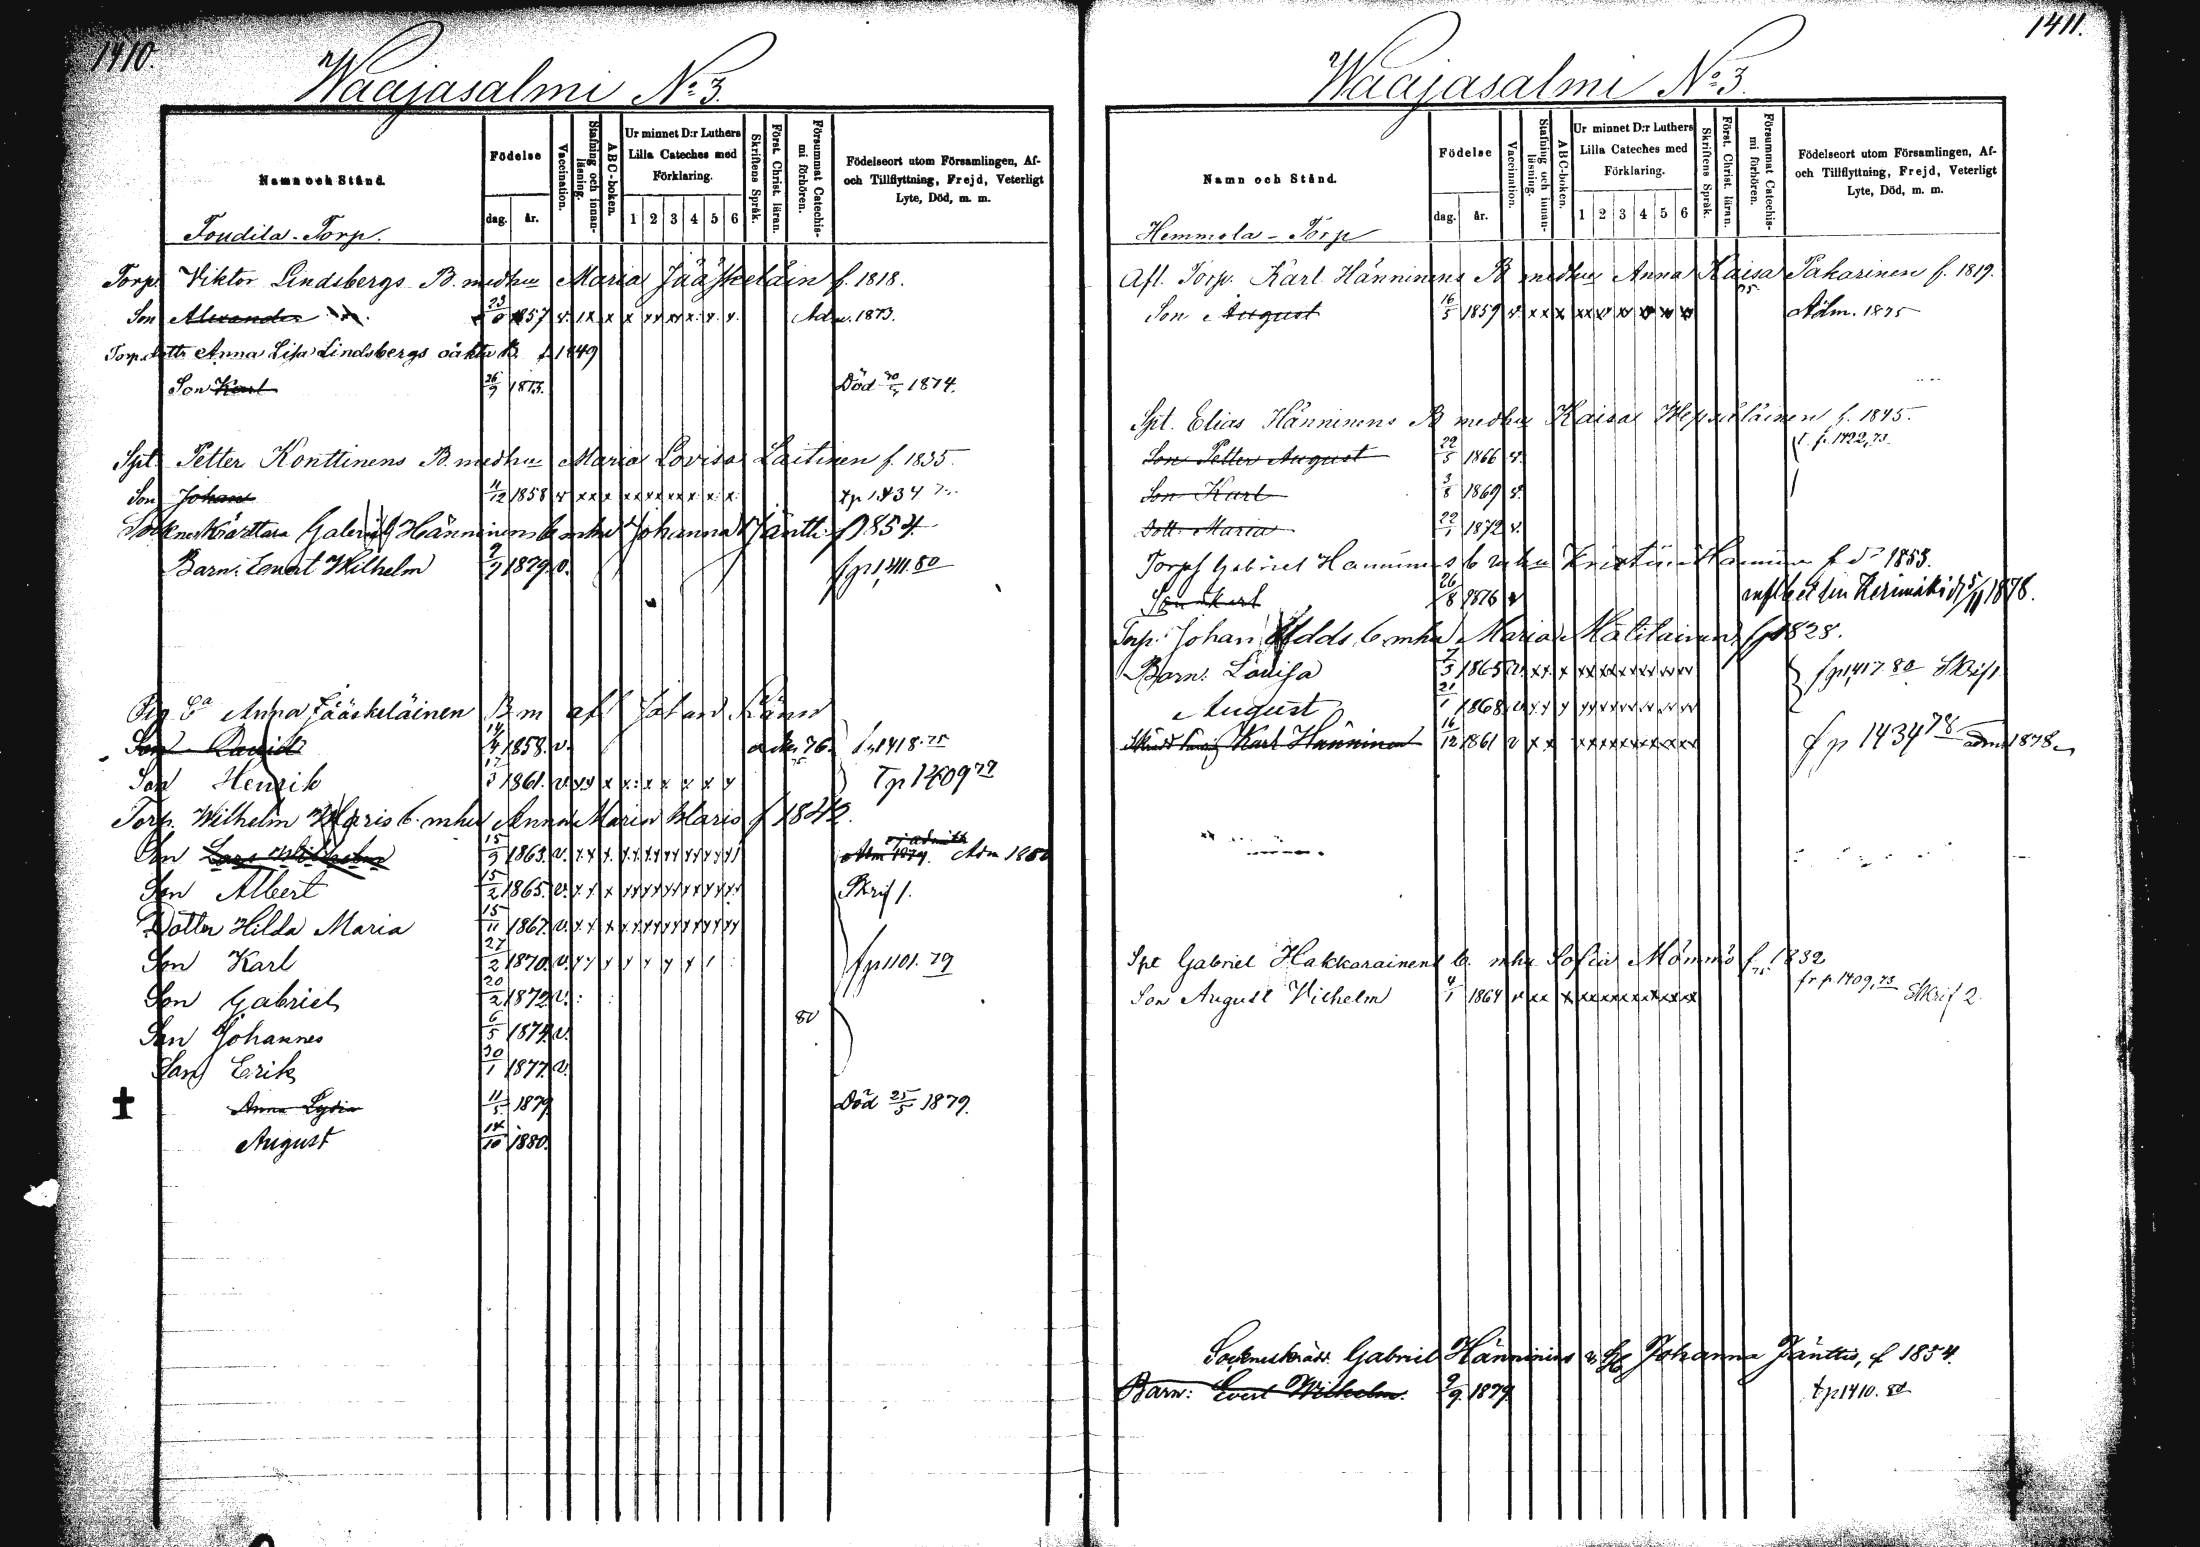 1410.
Waajasalmi No 3.
Namn och Stånd.
Födelse
dag. år.
Vaccination.
Stafning och innan-läsning.
ABC-boken.
Ur minnet D:r Luthers Lilla Cateches med Förklaring.
1 2 3 4 5 6
Skriftens Språk.
Först. Christ. läran.
Försummat Catechis-mi förhören.
Födelseort utom Församlingen, Af- och Tillflyttning, Frejd, Veterligt Lyte, Död, m. m.
Toudila-Torp.
Torp. Viktor Lindsbergs B. medhu Maria Jääskeläin f. 1818.
Son Alexander 1857 v. x x x x x x x x. v. v. Adm. 1873.
Anna Lisa Lindsbergs oäkta B. f. 1849
Son Karl 26/9 1873. Död 1874.
Spt. Petter Konttinens B. medhu Maria Lovisa Laitinen f. 1835.
Son Johan 11/12 1858 v x x x x x x x x x x x. x: tp 1434
Hänninens b mhu Johanna Jäntti f 1854
Barn: Evert Wilhelm 9/9 1879. v. fp 1411. 80
Pig. Anna Jääskeläinen B m afl Johan
Son David 1858. v. 76. 1418. 75
Son Henrik 17/3 1861. v. x x x x: x x x x x Tp 1409 77
Torp. Wilhelm Maris b. mhu Anna Maria Maris f 1842.
Son Lars Wilhelm 15/9 1863. v. x x x x x x x x x x x x x Adm 1879. Adm 1880
Son Albert 15/2 1865. v. x x x x x x x x x x x x x Skrif 1.
Dotter Hilda Maria 15/11 1867. v. x x x x x x x x x x x x x
Son Karl 27/2 1870. v. x x x x x x 1 fp 1101. 79
Son Gabriel 20/2 1872. v. :
Son Johannes 6/5 1874. v. 80
Son Erik 30/1 1877. v.
Anna Lydia 11/5 1879. Död 25/5 1879.
August 14/10 1880.
1411.
Waajasalmi No 3.
Namn och Stånd.
Födelse
dag. år.
Vaccination.
Stafning och innan-läsning.
ABC-boken.
Ur minnet D:r Luthers Lilla Cateches med Förklaring.
1 2 3 4 5 6
Skriftens Språk.
Först. Christ. läran.
Försummat Catechis-mi förhören.
Födelseort utom Församlingen, Af- och Tillflyttning, Frejd, Veterligt Lyte, Död, m. m.
Hemmola-Torp
Afl. Torp. Karl Hänninens B medhu Anna Kaisa Pakarinen f. 1819.
Son August 16/5 1859 v. x x x x x x x x x x x 75 Adm. 1875
Spt. Elias Hänninens B medhu Kaisa f. 1845.
Son Petter August 22/5 1866 v. t. p. 1422, 73.
Son Karl 3/8 1869 v.
Dott. Maria 22/1 1872 v.
Torp Gabriel Hänninens b mhu f 1853.
Son Karl 26/8 1876 v Kerimäki 1878.
Torp. Johan b. mhu Maria Matilainen f 1828.
Barn: Lovisa 7/3 1865 v. x x x x x x x x x x x x fp 1417 80 Skrif 1
August 21/1 1868 v. x x x x x x x x x x x
Karl Hänninen 16/12 1861 v x x x x x x x x x x x fp 1434 78 adm 1878
Spt Gabriel Hakkarainens b. mhu Sofia Mömmö f. 1832
Son August Vilhelm 4/1 1864 v x x x x x x x x x x x x 75 fr p. 1409, 73 Skrif 2.
Gabriel Hänninens Johanna Jänttis, f 1854.
Barn: Evert Wilhelm. 9/9 1879. tp 1410. 80